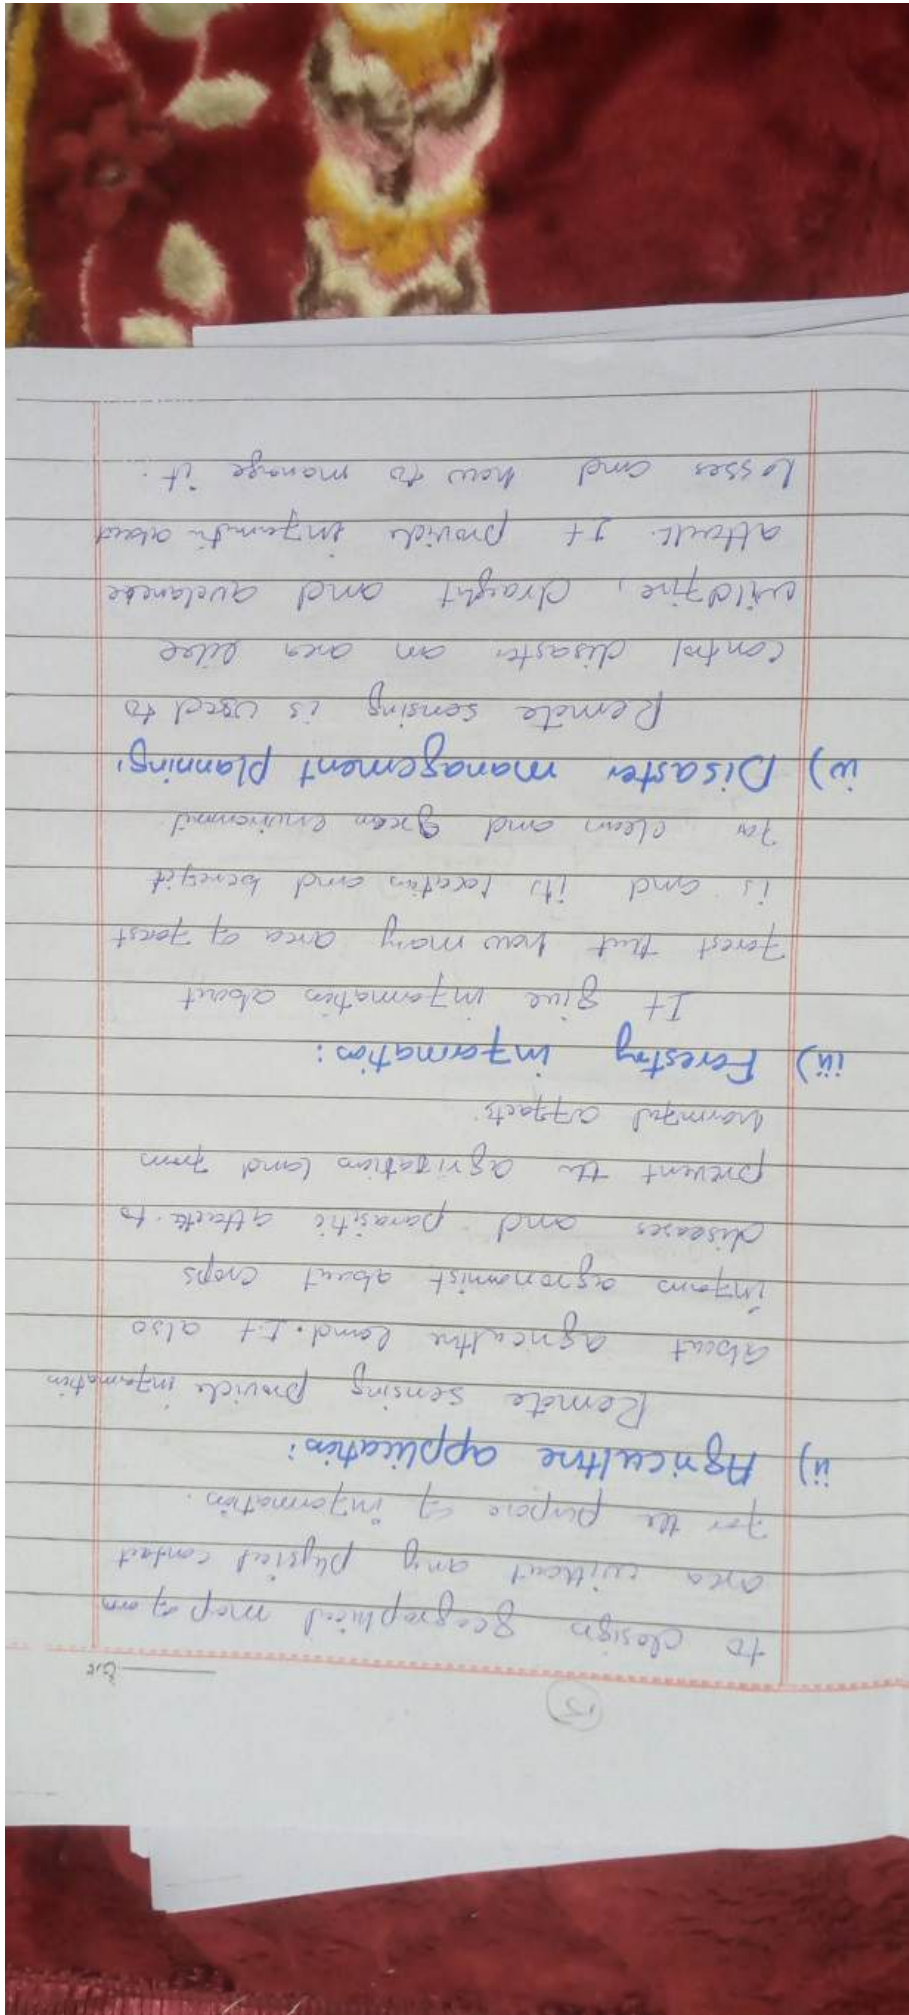 15
to design geographical map of an
area without any physical contact
for the purpose of information.
ii) Agriculture application:
Remote sensing provide information
about agriculture land. It also
inform agronomist about crops
diseases and parasitic attack to
prevent the agrisation land from
harmful affects.
iii) Forestry information:
It give information about
forest that how many area of forest
is and its location and benefit
for clean and green environment
iv) Disaster management planning:
Remote sensing is used to
control disaster an area like
wildfire, draught and avelanche
attack. It provide informatin about
losses and how to manage it.